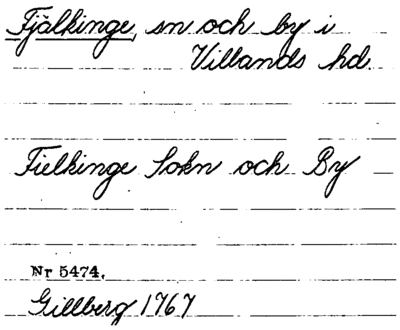 Fjälkinge, sn och by i
Villands hd.
Fielkinge Sokn och By
Nr 5474.
Gillberg 1767